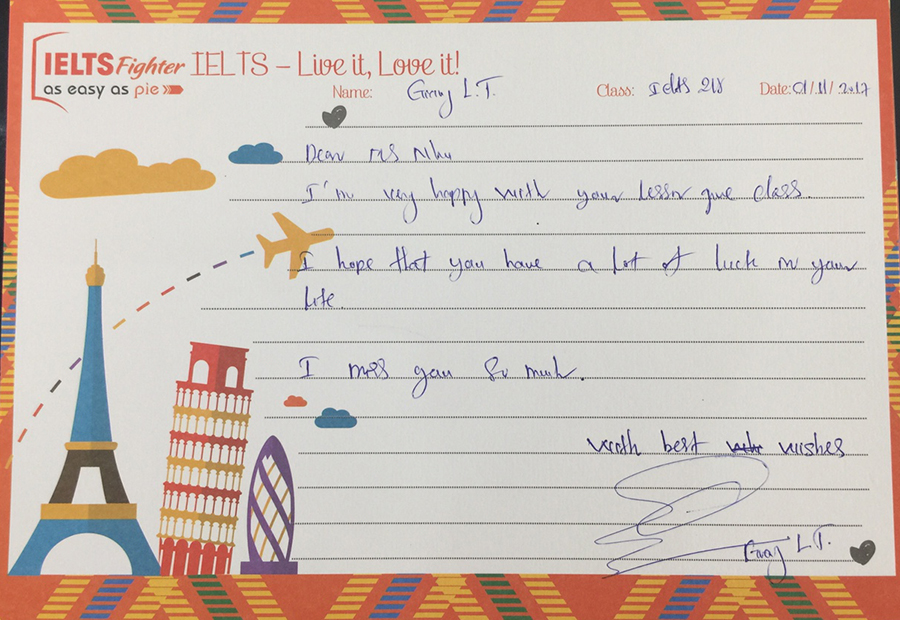 IELTS Fighter IELTS – Live it, Love it!
as easy as pie
Name: Giang L.T. Class: Ielts 218 Date: 01/11/2017
Dear Ms Như
I'm very happy with your lesson give class.
I hope that you have a lot of luck in your
life.
I miss you so much.
with best wishes
Giang L.T.